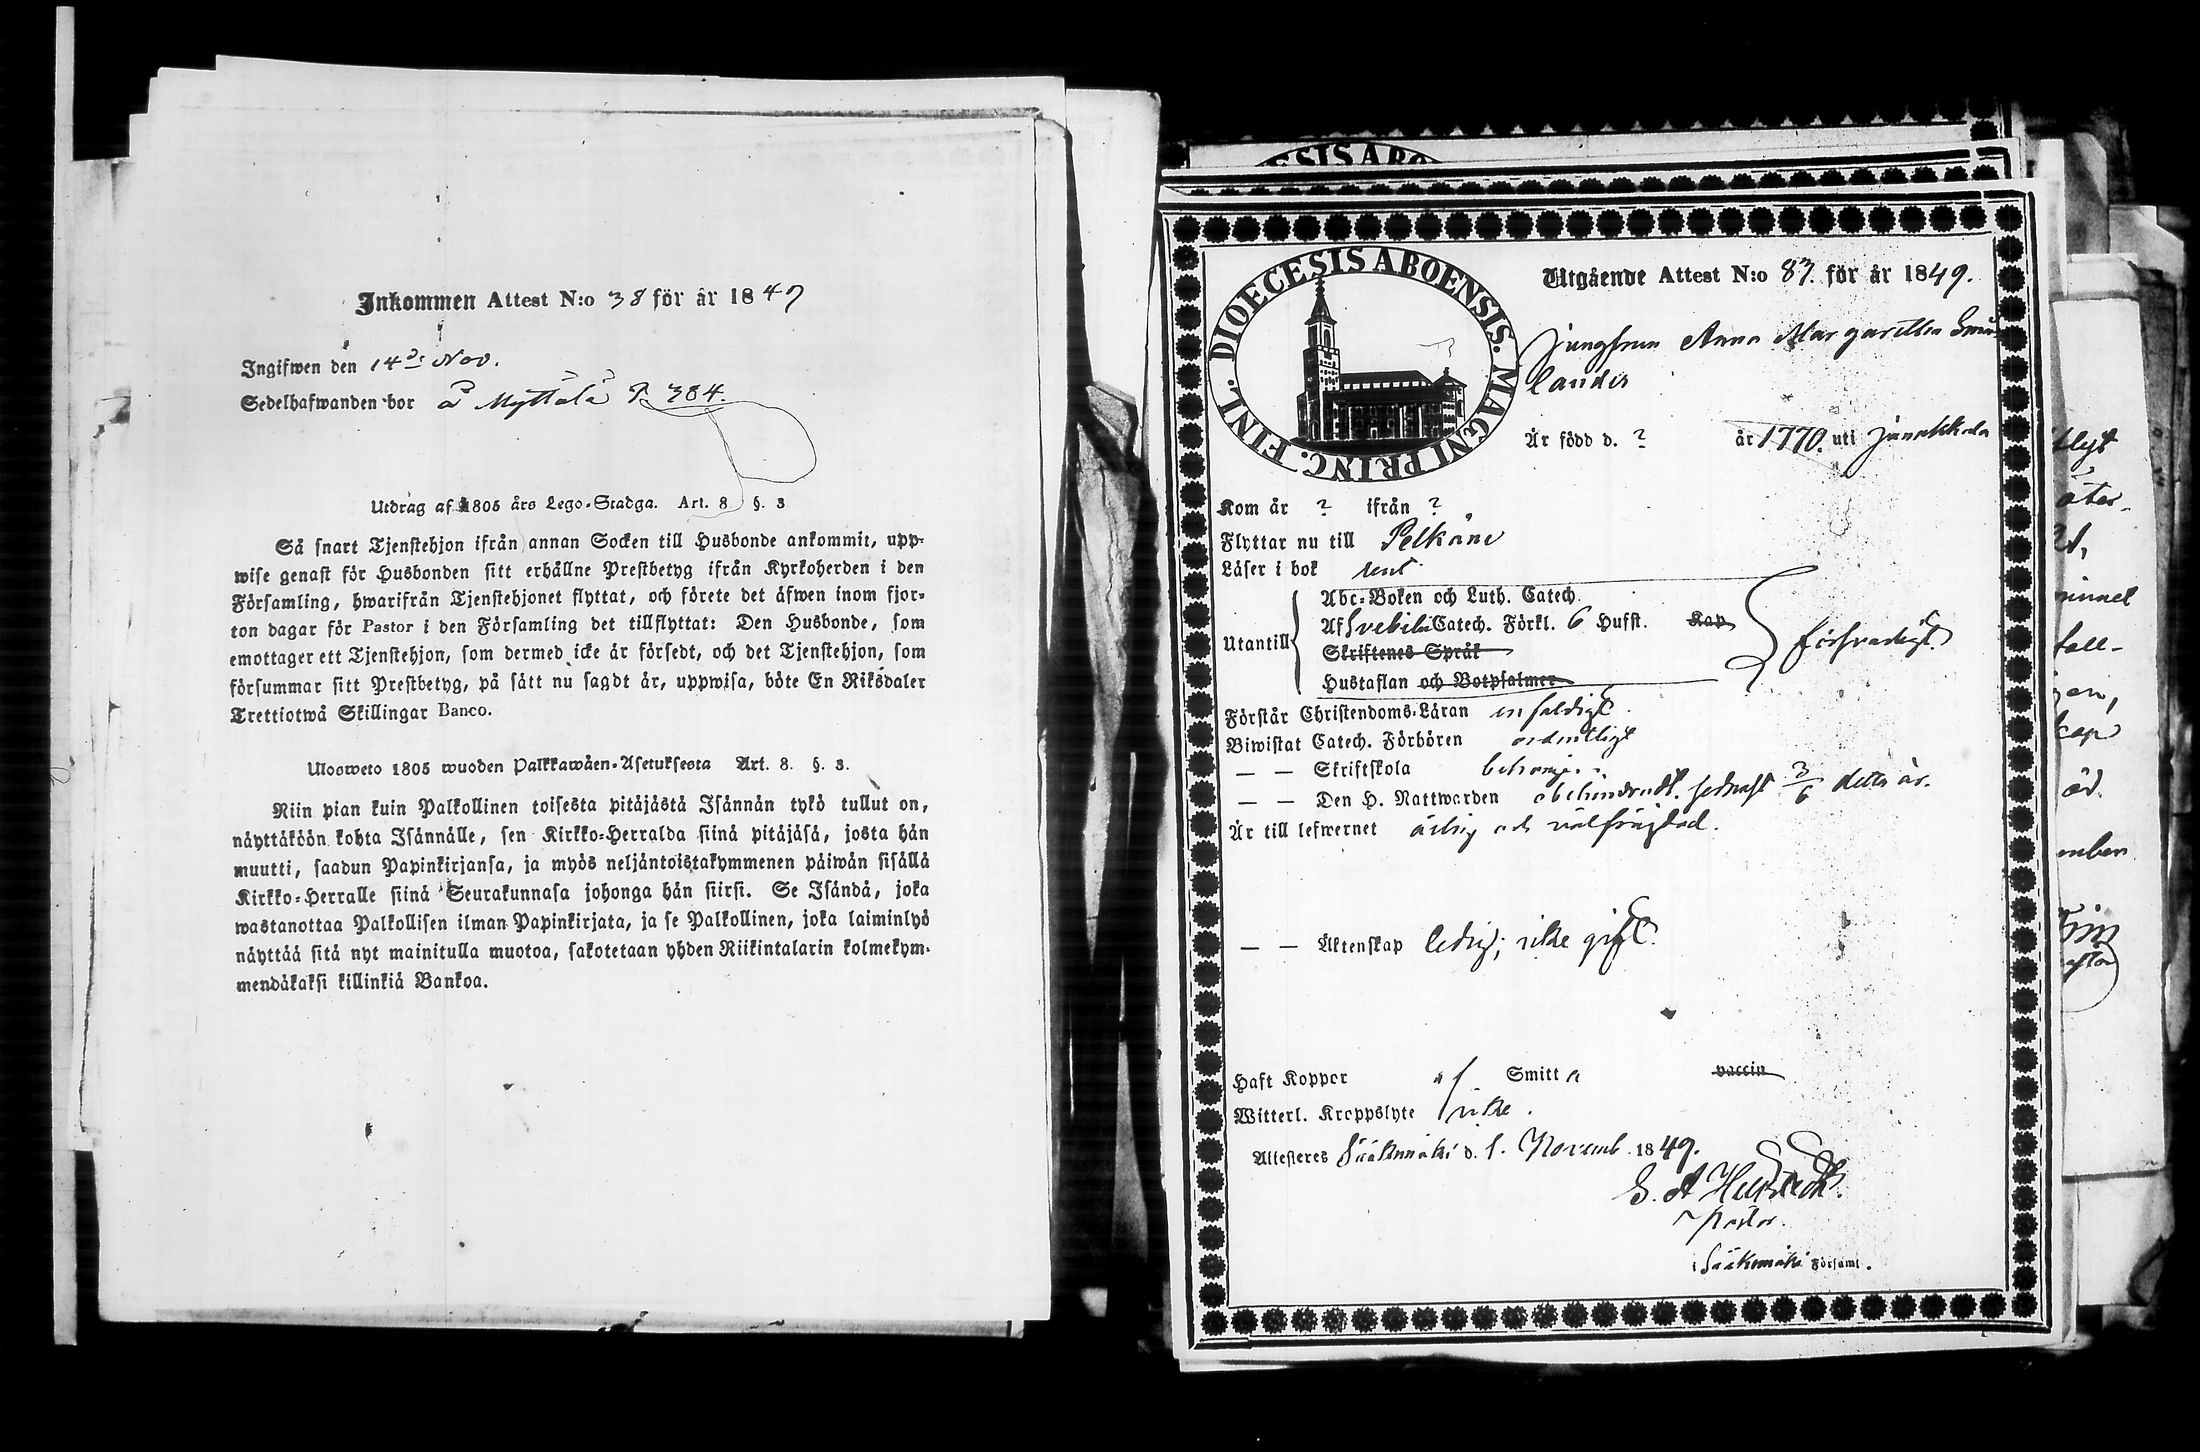 Inkommen Attest N:o 38 för år 1849
Ingifwen den 14de Nov.
Sedelhafwanden bor å Myttälä P. 384.
Utdrag af 1805 års Lego-Stadga. Art. 8 §. 3
Så snart Tjenstehjon ifrån annan Socken till Husbonde ankommit, upp-
wise genast för Husbonden sitt erhållne Prestbetyg ifrån Kyrkoherden i den
Församling, hwarifrån Tjenstehjonet flyttat, och förete det äfwen inom fjor-
ton dagar för Pastor i den Församling det tillflyttat: Den Husbonde, som
emottager ett Tjenstehjon, som dermed icke är försedt, och det Tjenstehjon, som
försummar sitt Prestbetyg, på sätt nu sagdt är, uppwisa, böte En Riksdaler
Trettiotwå Skillingar Banco.
Ulosweto 1805 wuoden Palkkawäen-Asetuksesta Art. 8. §. 3.
Niin pian kuin Palkollinen toisesta pitäjästä Isännän tykö tullut on,
näyttäköön kohta Isännälle, sen Kirkko-Herralda siinä pitäjäsä, josta hän
muutti, saadun Papinkirjansa, ja myös neljäntoistakymmenen päiwän sisällä
Kirkko-Herralle siinä Seurakunnasa johonga hän siirsi. Se Isändä, joka
wastanottaa Palkollisen ilman Papinkirjata, ja se Palkollinen, joka laiminlyö
näyttää sitä nyt mainitulla muotoa, sakotetaan yhden Riikintalarin kolmekym-
mendäkaksi killinkiä Bankoa.
DIOECESIS ABOENSIS. MAGNI PRINC. FINL.
Utgående Attest N:o 83. för år 1849.
Jungfrun Anna Margaretha
lander
Är född d. ? år 1770. uti Janakkala
Kom år ? ifrån ?
Flyttar nu till Pelkäne
Läser i bok rent
Abc-Boken och Luth. Catech.
Utantill Af Svebili Catech. Förkl. 6 Hufst. Kap försvarligt.
Skriftenes Språk
Hustaflan och Botpsalmer
Förstår Christendoms-Läran enfaldigt.
Biwistat Catech. Förhören ordentligt
— — Skriftskola
— — Den H. Nattwarden obehindradt. sednast 3/6 detta år.
Är till lefwernet ärlig och välfrägdad.
— — Äktenskap ledig; icke gift.
Haft Koppor af Smitta vaccin
Witterl. Kroppslyte icke.
Attesteres Sääksmäki d. 1. Novemb. 1849.
Pastor.
i Sääksmäki Församl.